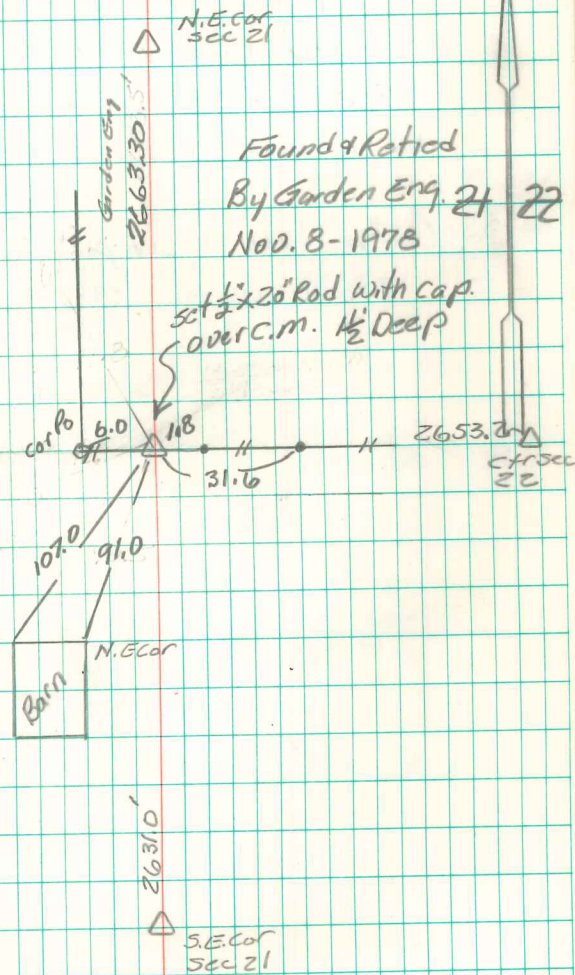 N.E.Cor
sec 21
Garden Eng
2663.30
Found & Retied
By Garden Eng.
21 22
Nov. 8-1978
set ½"x20" Rod with cap.
over C.M. 1½' Deep
cor Po
6.0
1.8
31.6
2653.2
Ctr sec
22
107.0
91.0
N.ECor
Barn
2631.0'
S.E.Cor
Sec 21